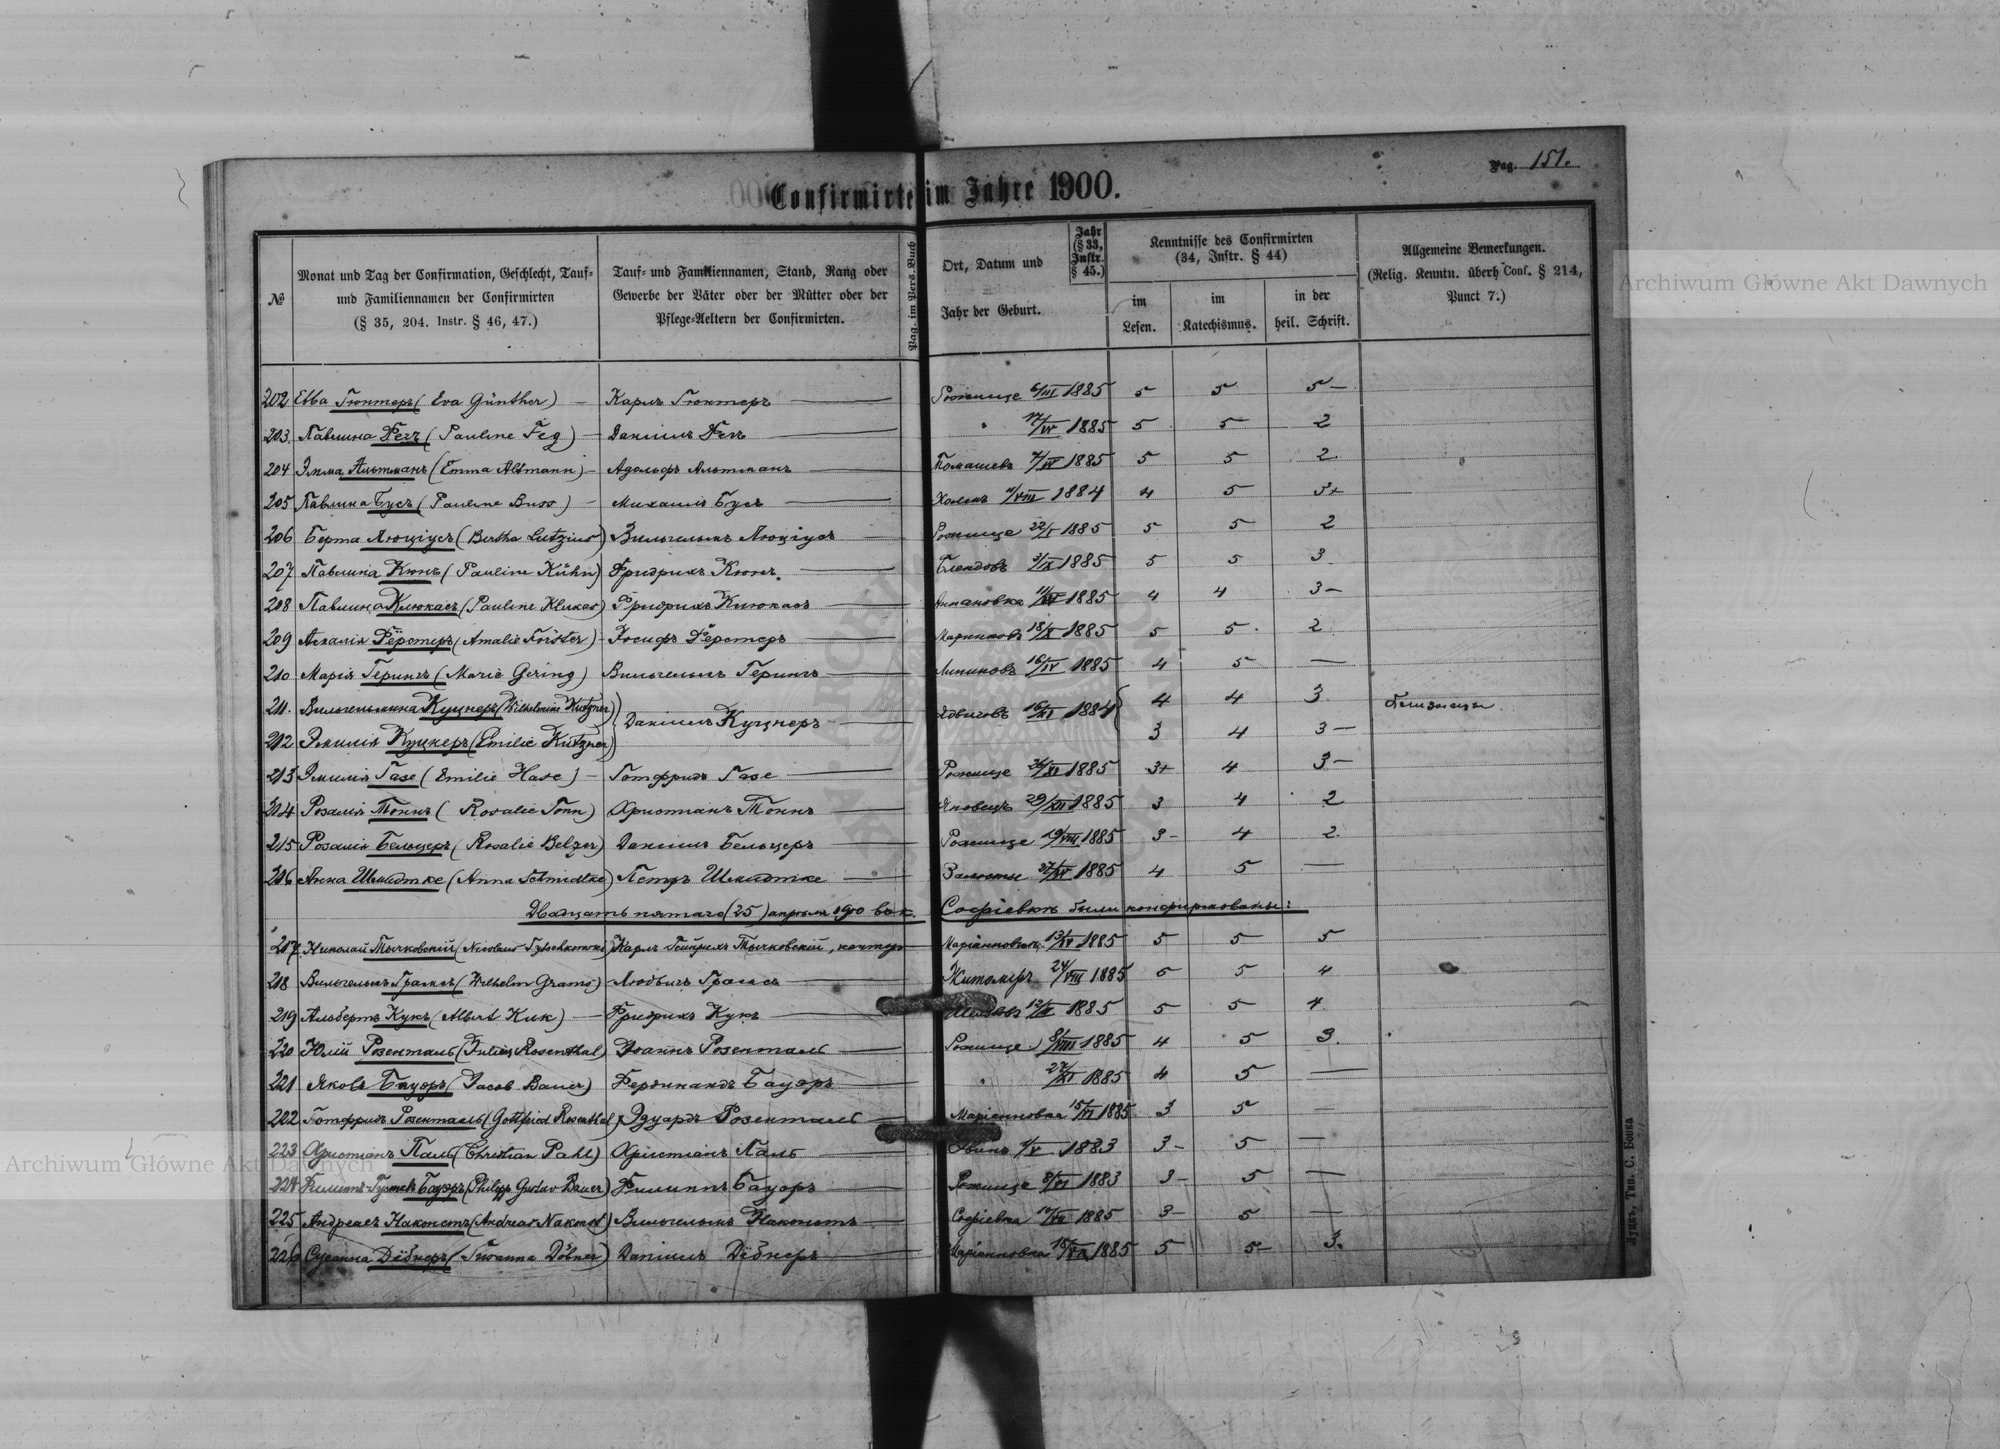 Pag. 151.
Confirmirte im Jahre 1900.
№
Monat und Tag der Confirmation, Geschlecht, Tauf-
und Familiennamen der Confirmirten
(§ 35, 204. Instr. § 46, 47.)
Tauf- und Familiennamen, Stand, Rang oder
Gewerbe der Väter oder der Mütter oder der
Pflege-Aeltern der Confirmirten.
Pag. im Pers.-Buch
Ort, Datum und
Jahr der Geburt.
Jahr
(§ 33,
Instr.
§ 45.)
Kenntnisse des Confirmirten
(34, Instr. § 44)
im
Lesen.
im
Katechismus.
in der
heil. Schrift.
Allgemeine Bemerkungen.
(Relig. Kenntn. überh Conf. § 214,
Punct 7.)
202 Евва Гюнтеръ (Eva Günther) — Карлъ Гюнтеръ — Рожище 6/III 1885 5 5 5 —
203. Павлина Фегъ (Pauline Feg) — Данiилъ Фегъ — " 17/IV 1885 5 5 2
204 Эмма Альтманъ (Emma Altmann) — Адольфъ Альтманъ — 1885 5 5 2.
205 Павлина Бусъ (Pauline Buss) — Михаилъ Бусъ — 1884 4 5 3+
206 Берта Люцiусъ (Bertha Lutzius) Вильгельмъ Люцiусъ — Рожище 22/I 1885 5 5 2
207 Павлина Кюнъ (Pauline Kühn) Фридрихъ Кюнъ. — 3/IX 1885 5 5 3.
208 Павлина Клюкасъ (Pauline Klukas) Фридрихъ Клюкасъ — 1885 4 4 3 —
209 Амалiя Фёрстеръ (Amalie Förster) — Іосифъ Фёрстеръ — 18/X 1885 5 5. 2
210 Марiя Герингъ (Marie Gering) Вильгельмъ Герингъ — 16/IV 1885 4 5 —
211. Вильгельмина Куцнеръ (Wilhelmine Kutzner) Данiилъ Куцнеръ — 16/XI 1884 4 4 3
212 Эмилiя Куцнеръ (Emilie Kutzner) 3 4 3 —
213 Эмилiя Газе (Emilie Hase) — Готфридъ Газе — Рожище 26/XI 1885 3+ 4 3 —
214 Розалiя Тоннъ (Rosalie Tonn) Христiанъ Тоннъ — 29/XII 1885 3 4 2
215 Розалiя Бельцеръ (Rosalie Belzer) Данiилъ Бельцеръ — Рожище 19/VIII 1885 3 — 4 2.
216 Анна Шмидтке (Anna Schmidtke) Петръ Шмидтке — 1885 4 5 —
Двадцать пятаго (25) апрѣля 1900 въ к. Софiевкѣ были конфирмованы:
217. Николай Тычковскiй (Nicolaus Tytschkowski) Карлъ Гейнрихъ Тычковскiй, — Марiановка 1885 5 5 5
218 Вильгельмъ Грамсъ (Wilhelm Grams) — Людвигъ Грамсъ — Житомiръ 24/VIII 1885 5 5 4
219 Альбертъ Кукъ (Albert Kuk) — Фридрихъ Кукъ — 1885 5 5 4.
220 Юлiй Розенталь (Julius Rosenthal) Іоаннъ Розенталь — Рожище 8/VIII 1885 4 5 3.
221 Яковъ Бауэръ (Jacob Bauer) Фердинандъ Бауэръ — " 27/XI 1885 4 5 —
222 Готфридъ Розенталь (Gottfried Rosenthal) Эдуардъ Розенталь — Марiановка 15/VI 1885 3 5 —
223 Христiанъ Паль (Christian Pahl) Христiанъ Паль — 1883 3 — 5 —
224 Филиппъ Густавъ Бауэръ (Philipp Gustav Bauer) Филиппъ Бауэръ — Рожище 8/VI 1883 3 — 5 —
225 Андреасъ Наконстъ (Andreas Nakonst) Вильгельмъ Наконстъ — Софiевка 1885 3 — 5 —
226 Сусанна Дёбнеръ (Susanna Döbner) Данiилъ Дёбнеръ — Марiановка 1885 5 5 — 3.
Луцкъ, Тип. С. Бокса
Archiwum Główne Akt Dawnych
Archiwum Główne Akt Dawnych